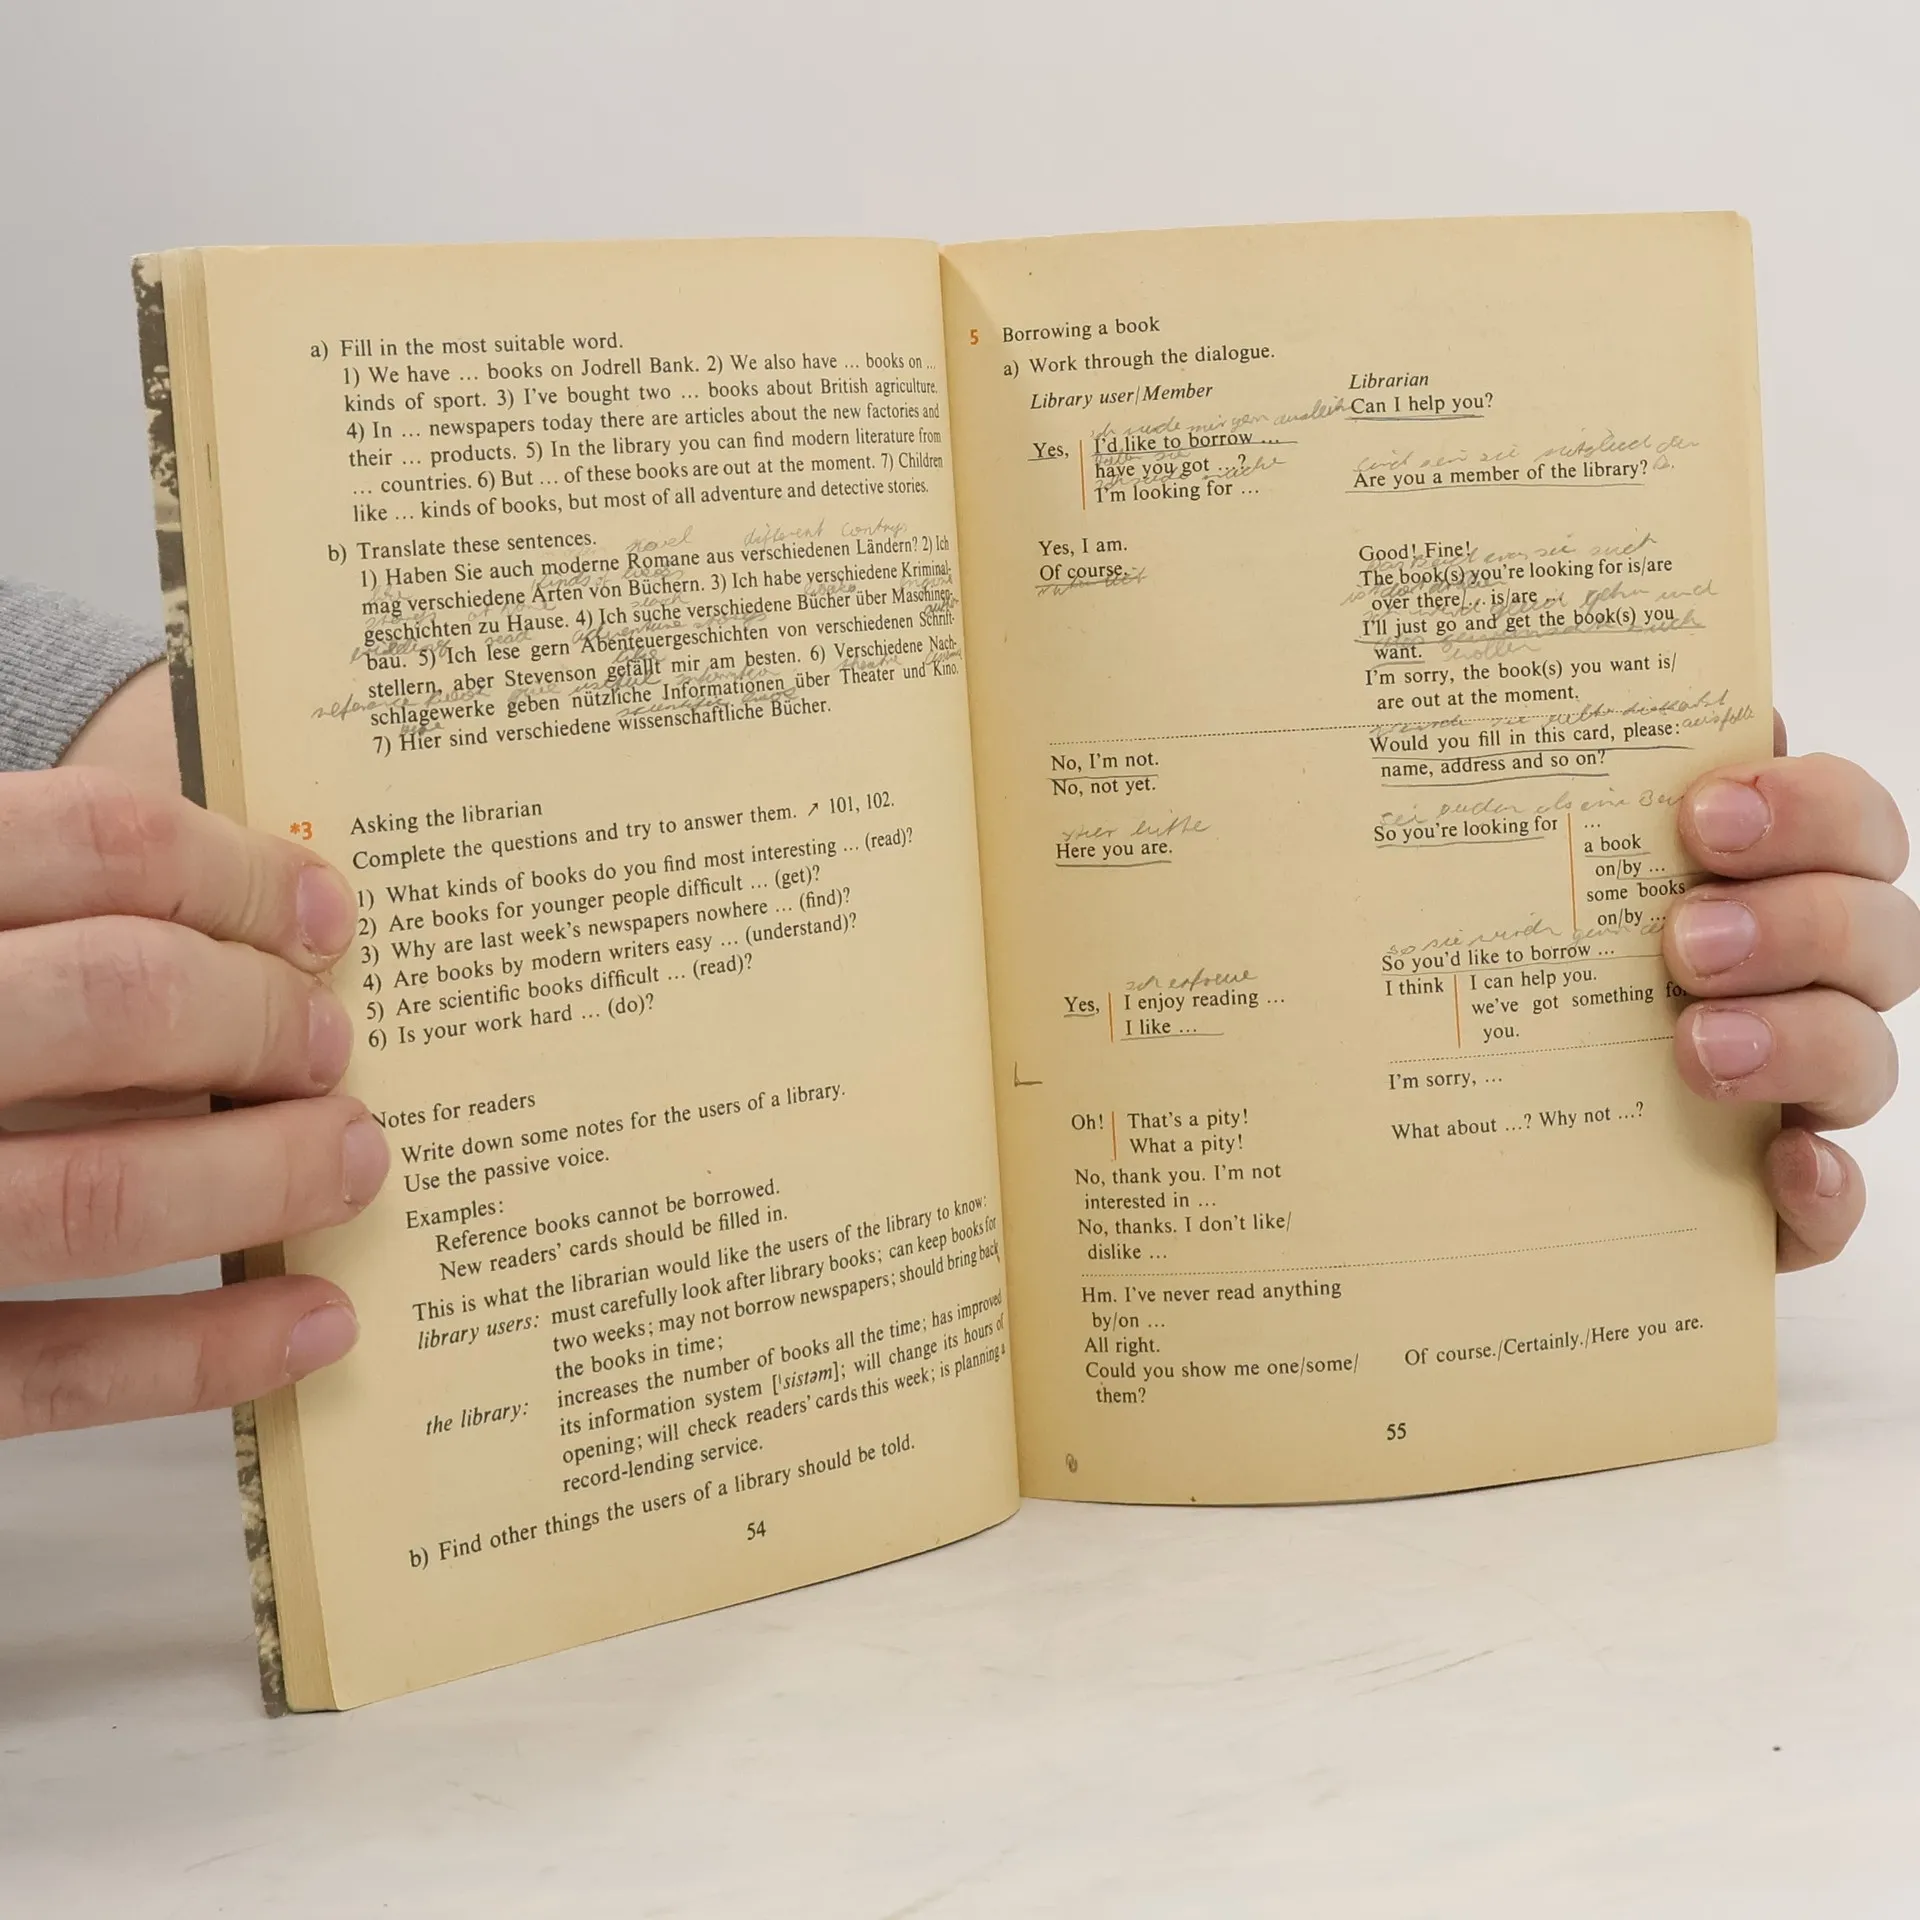 a) Fill in the most suitable word.
1) We have ... books on Jodrell Bank. 2) We also have ... books on ...
kinds of sport. 3) I've bought two ... books about British agriculture.
4) In ... newspapers today there are articles about the new factories and
their ... products. 5) In the library you can find modern literature from
... countries. 6) But ... of these books are out at the moment. 7) Children
like ... kinds of books, but most of all adventure and detective stories.
b) Translate these sentences.
novel different
1) Haben Sie auch moderne Romane aus verschiedenen Ländern? 2) Ich
kinds of
mag verschiedene Arten von Büchern. 3) Ich habe verschiedene Kriminal-
stories at home
geschichten zu Hause. 4) Ich suche verschiedene Bücher über Maschinen-
read adventure stories
bau. 5) Ich lese gern Abenteuergeschichten von verschiedenen Schrift-
like
stellern, aber Stevenson gefällt mir am besten. 6) Verschiedene Nach-
schlagewerke geben nützliche Informationen über Theater und Kino.
7) Hier sind verschiedene wissenschaftliche Bücher.
*3 Asking the librarian
Complete the questions and try to answer them. ↗ 101, 102.
1) What kinds of books do you find most interesting ... (read)?
2) Are books for younger people difficult ... (get)?
3) Why are last week's newspapers nowhere ... (find)?
4) Are books by modern writers easy ... (understand)?
5) Are scientific books difficult ... (read)?
6) Is your work hard ... (do)?
Notes for readers
Write down some notes for the users of a library.
Use the passive voice.
Examples:
Reference books cannot be borrowed.
New readers' cards should be filled in.
This is what the librarian would like the users of the library to know:
library users: must carefully look after library books; can keep books for
two weeks; may not borrow newspapers; should bring back
the books in time;
the library: increases the number of books all the time; has improved
its information system ['sistəm]; will change its hours of
opening; will check readers' cards this week; is planning a
record-lending service.
b) Find other things the users of a library should be told.
54
5 Borrowing a book
a) Work through the dialogue.
Library user/Member Librarian
Can I help you?
Yes, I'd like to borrow ...
have you got ...?
I'm looking for ...
Are you a member of the library?
Yes, I am.
Of course.
Good! Fine!
The book(s) you're looking for is/are
over there/... is/are ...
I'll just go and get the book(s) you
want.
wollen
I'm sorry, the book(s) you want is/
are out at the moment.
No, I'm not.
No, not yet.
Would you fill in this card, please:
name, address and so on?
Hier bitte
Here you are.
So you're looking for ...
a book
on/by ...
some books
on/by ...
So you'd like to borrow ...
I think I can help you.
we've got something
you.
Yes, I enjoy reading ...
I like ...
I'm sorry, ...
Oh! That's a pity!
What a pity!
What about ...? Why not ...?
No, thank you. I'm not
interested in ...
No, thanks. I don't like/
dislike ...
Hm. I've never read anything
by/on ...
All right.
Could you show me one/some/
them?
Of course./Certainly./Here you are.
55